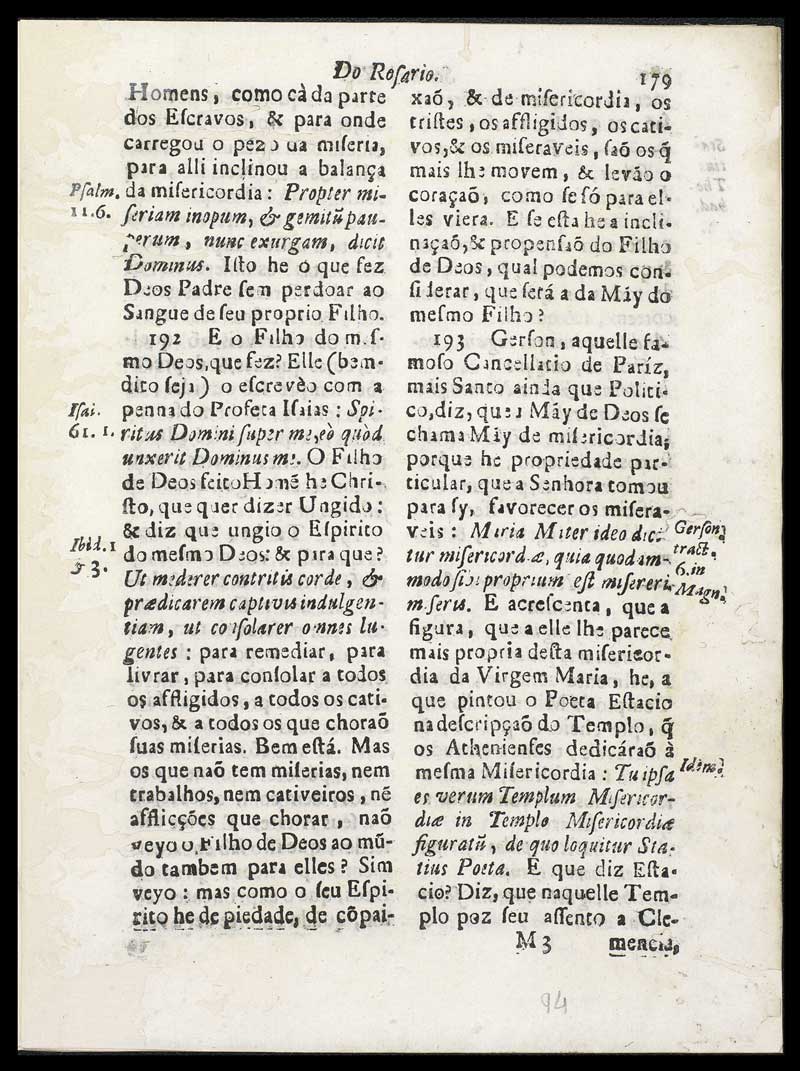 Do Roſario.
179
Homens, como cà da parte
dos Eſcravos, & para onde
carregou o pezo da miſeria,
para alli inclinou a balança
Pſalm.
11.6.
da miſericordia: Propter mi-
ſeriam inopum, & gemitũ pau-
perum, nunc exurgam, dicit
Dominus. Iſto he o que fez
Deos Padre ſem perdoar ao
Sangue de ſeu proprio Filho.
192 E o Filho do meſ-
mo Deos, que fez? Elle (bem-
dito ſeja) o eſcrevèo com a
Iſai.
61. 1.
penna do Profeta Iſaias: Spi-
ritus Domini ſuper me, eò quòd
unxerit Dominus me. O Filho
de Deos feito Homẽ he Chri-
ſto, que quer dizer Ungido:
& diz que ungio o Eſpirito
Ibid. 1
& 3.
do meſmo Deos: & para que?
Ut mederer contritis corde, &
prædicarem captivis indulgen-
tiam, ut conſolarer omnes lu-
gentes: para remediar, para
livrar, para conſolar a todos
os affligidos, a todos os cati-
vos, & a todos os que choraõ
ſuas miſerias. Bem eſtá. Mas
os que naõ tem miſerias, nem
trabalhos, nem cativeiros, nẽ
afflicções que chorar, naõ
veyo o Filho de Deos ao mũ-
do tambem para elles? Sim
veyo: mas como o ſeu Eſpi-
rito he de piedade, de cõpai-
xaõ, & de miſericordia, os
triſtes, os affligidos, os cati-
vos, & os miſeraveis, ſaõ os q̃
mais lhe movem, & levão o
coraçaõ, como ſe ſó para el-
les viera. E ſe eſta he a incli-
naçaõ, & propenſaõ do Filho
de Deos, qual podemos con-
ſiderar, que ſerá a da Máy do
meſmo Filho?
193 Gerſon, aquelle fa-
moſo Cancellario de Paríz,
mais Santo ainda que Politi-
co, diz, que a Máy de Deos ſe
chama Máy de miſericordia;
porque he propriedade par-
ticular, que a Senhora tomou
para ſy, favorecer os miſera-
veis: Maria Mater ideo dici-
Gerſon,
tract.
6. in
Magn.
tur miſericordiæ, quia quodam-
modo ſibi proprium eſt miſereri
miſeris. E acreſcenta, que a
figura, que a elle lhe parece
mais propria deſta miſericor-
dia da Virgem Maria, he, a
que pintou o Poeta Eſtacio
na deſcripçaõ do Templo, q̃
os Athenienſes dedicáraõ à
meſma Miſericordia: Tu ipſa
Idem.
es verum Templum Miſericor-
diæ in Templo Miſericordiæ
figuratũ, de quo loquitur Sta-
tius Poeta. E que diz Eſta-
cio? Diz, que naquelle Tem-
plo poz ſeu aſſento a Cle-
M 3
mencia,
94